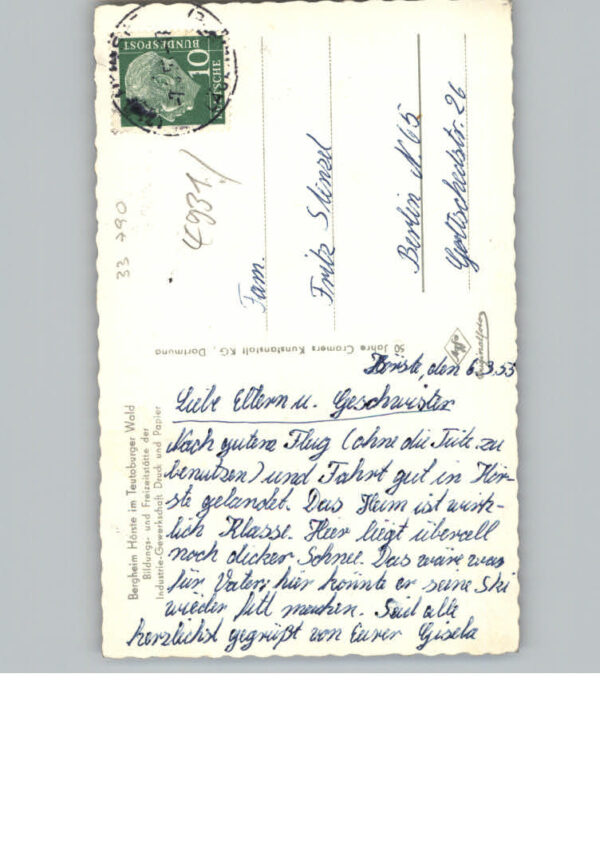 10
DEUTSCHE
BUNDESPOST
33 790
4931/
Fam.
Fritz Stenzel
Berlin N 65
Gottschedstr. 26
Jahre Cramers Kunstanstalt KG., Dortmund
Originalfoto
Bergheim Hörste im Teutoburger Wald
Bildungs- und Freizeitstätte der
Industrie-Gewerkschaft Druck und Papier
Hörste, den 6.3.55
Liebe Eltern u. Geschwister
Nach gutem Flug (ohne die Tüte zu
benutzen) und Fahrt gut in Hör-
ste gelandet. Das Heim ist wirk-
lich Klasse. Hier liegt überall
noch dicker Schnee. Das wäre was
für Vater, hier könnte er seine Ski
wieder fitt machen. Seid alle
herzlichst gegrüßt von Eurer Gisela